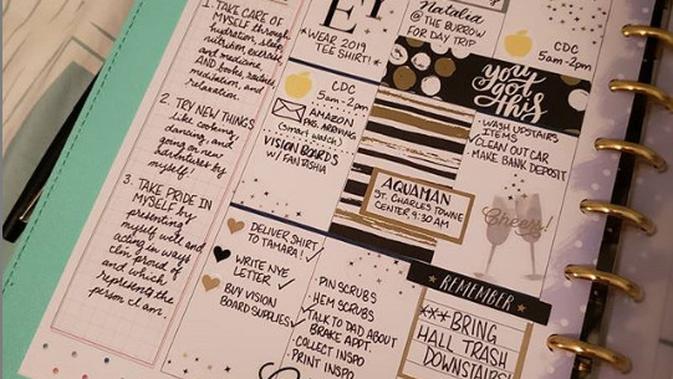 1. TAKE CARE OF
MYSELF through
hydration, sleep,
nutrition, exercise,
and medicine,
AND books,
meditation, and
relaxation.
2. TRY NEW THINGS
like cooking,
dancing, and
going on new
adventures by
myself!
3. TAKE PRIDE IN
MYSELF by
presenting
myself well and
acting in ways
I'm proud of
and which
represents the
person I am.
*WEAR 2019
TEE SHIRT! *
CDC
5am-2pm
AMAZON
PKG. ARRIVING
(smart watch)
VISION BOARDS
W/ FANTASHIA
DELIVER SHIRT
TO TAMARA!
WRITE NYE
LETTER
BUY VISION
BOARD SUPPLIES
Natalia
@ THE BURROW
FOR DAY TRIP
AQUAMAN
ST. CHARLES TOWNE
CENTER, 9:30 AM
• PIN SCRUBS
• HEM SCRUBS
TALK TO DAD ABOUT
BRAKE APPT.
• COLLECT INSPO
• PRINT INSPO
CDC
5am-2pm
you
got
this
• WASH UPSTAIRS
ITEMS
CLEAN OUT CAR
• MAKE BANK DEPOSIT
Cheers!
REMEMBER
*** BRING
HALL TRASH
DOWNSTAIRS!